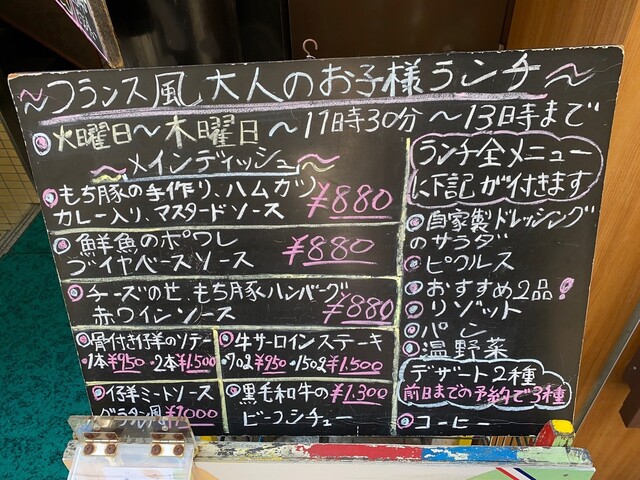 ～フランス風 大人のお子様ランチ～
火曜日～木曜日 ～11時30分～13日時まで
～メインディッシュ～
もち豚の手作り、ハムカツ
カレー入り、マスタードソース ¥880
鮮魚のポワレ
ブイヤベースソース ¥880
チーズのせ、もち豚ハンバーグ
赤ワインソース ¥880
骨付き仔羊のソテー
1本¥950・2本¥1.500
牛サーロインステーキ
・70g¥950・150g¥1.500
仔羊ミートソース
グラタン風¥1000
黒毛和牛の ¥1.300
ビーフシチュー
ランチ全メニュー
に下記が付きます
自家製ドレッシング
のサラダ
ピクルス
おすすめ2品!
リゾット
パン
温野菜
デザート2種
前日までの予約で3種
コーヒー